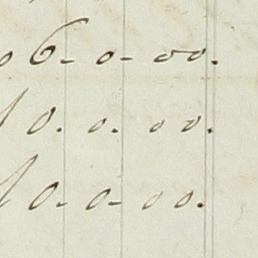 06-0-00.
10.0.00.
10-0-00.